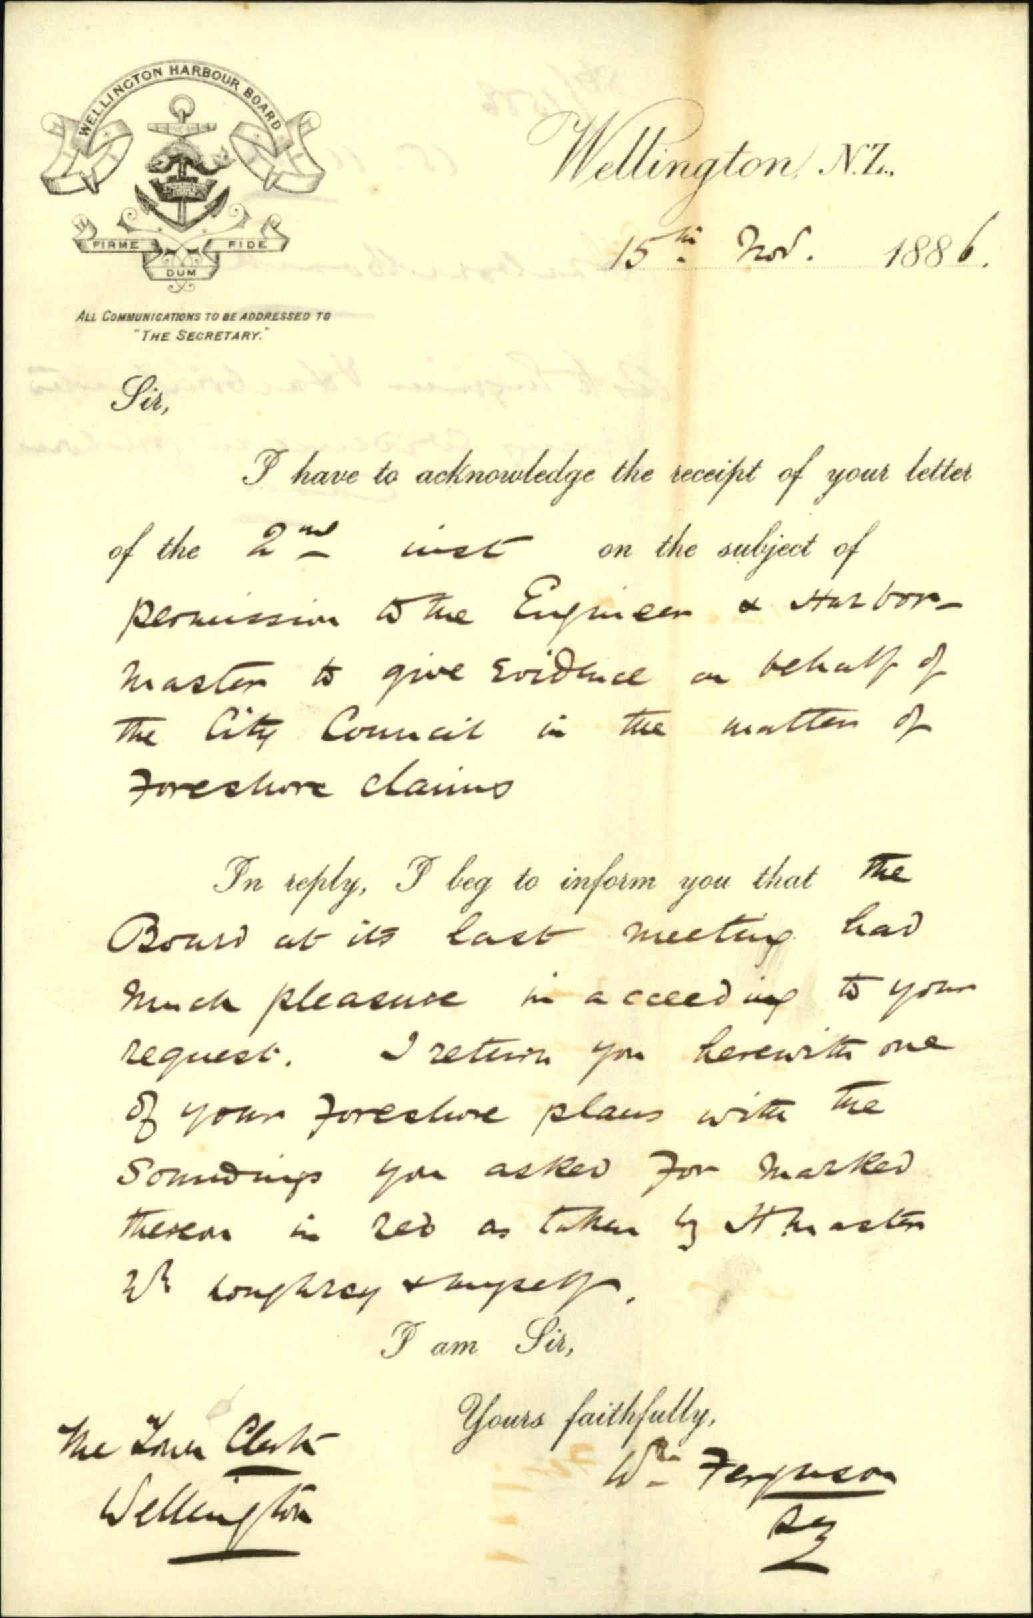 WELLINGTON HARBOUR BOARD
FIRME DUM FIDE
ALL COMMUNICATIONS TO BE ADDRESSED TO
"THE SECRETARY."
Wellington, N.Z.,
15th Nov. 1886.
Sir,
I have to acknowledge the receipt of your letter
of the 2nd inst on the subject of
permission to the Engineer & Harbor-
master to give evidence on behalf of
the City Council in the matter of
Foreshore claims
In reply, I beg to inform you that the
Board at its last meeting had
much pleasure in acceeding to your
request. I return you herewith one
of your Foreshore plans with the
Soundings you asked for marked
thereon in red as taken by H master
Mr Loughrey & myself.
I am Sir,
Yours faithfully,
Wm Ferguson
Sey
The Town Clerk
Wellington